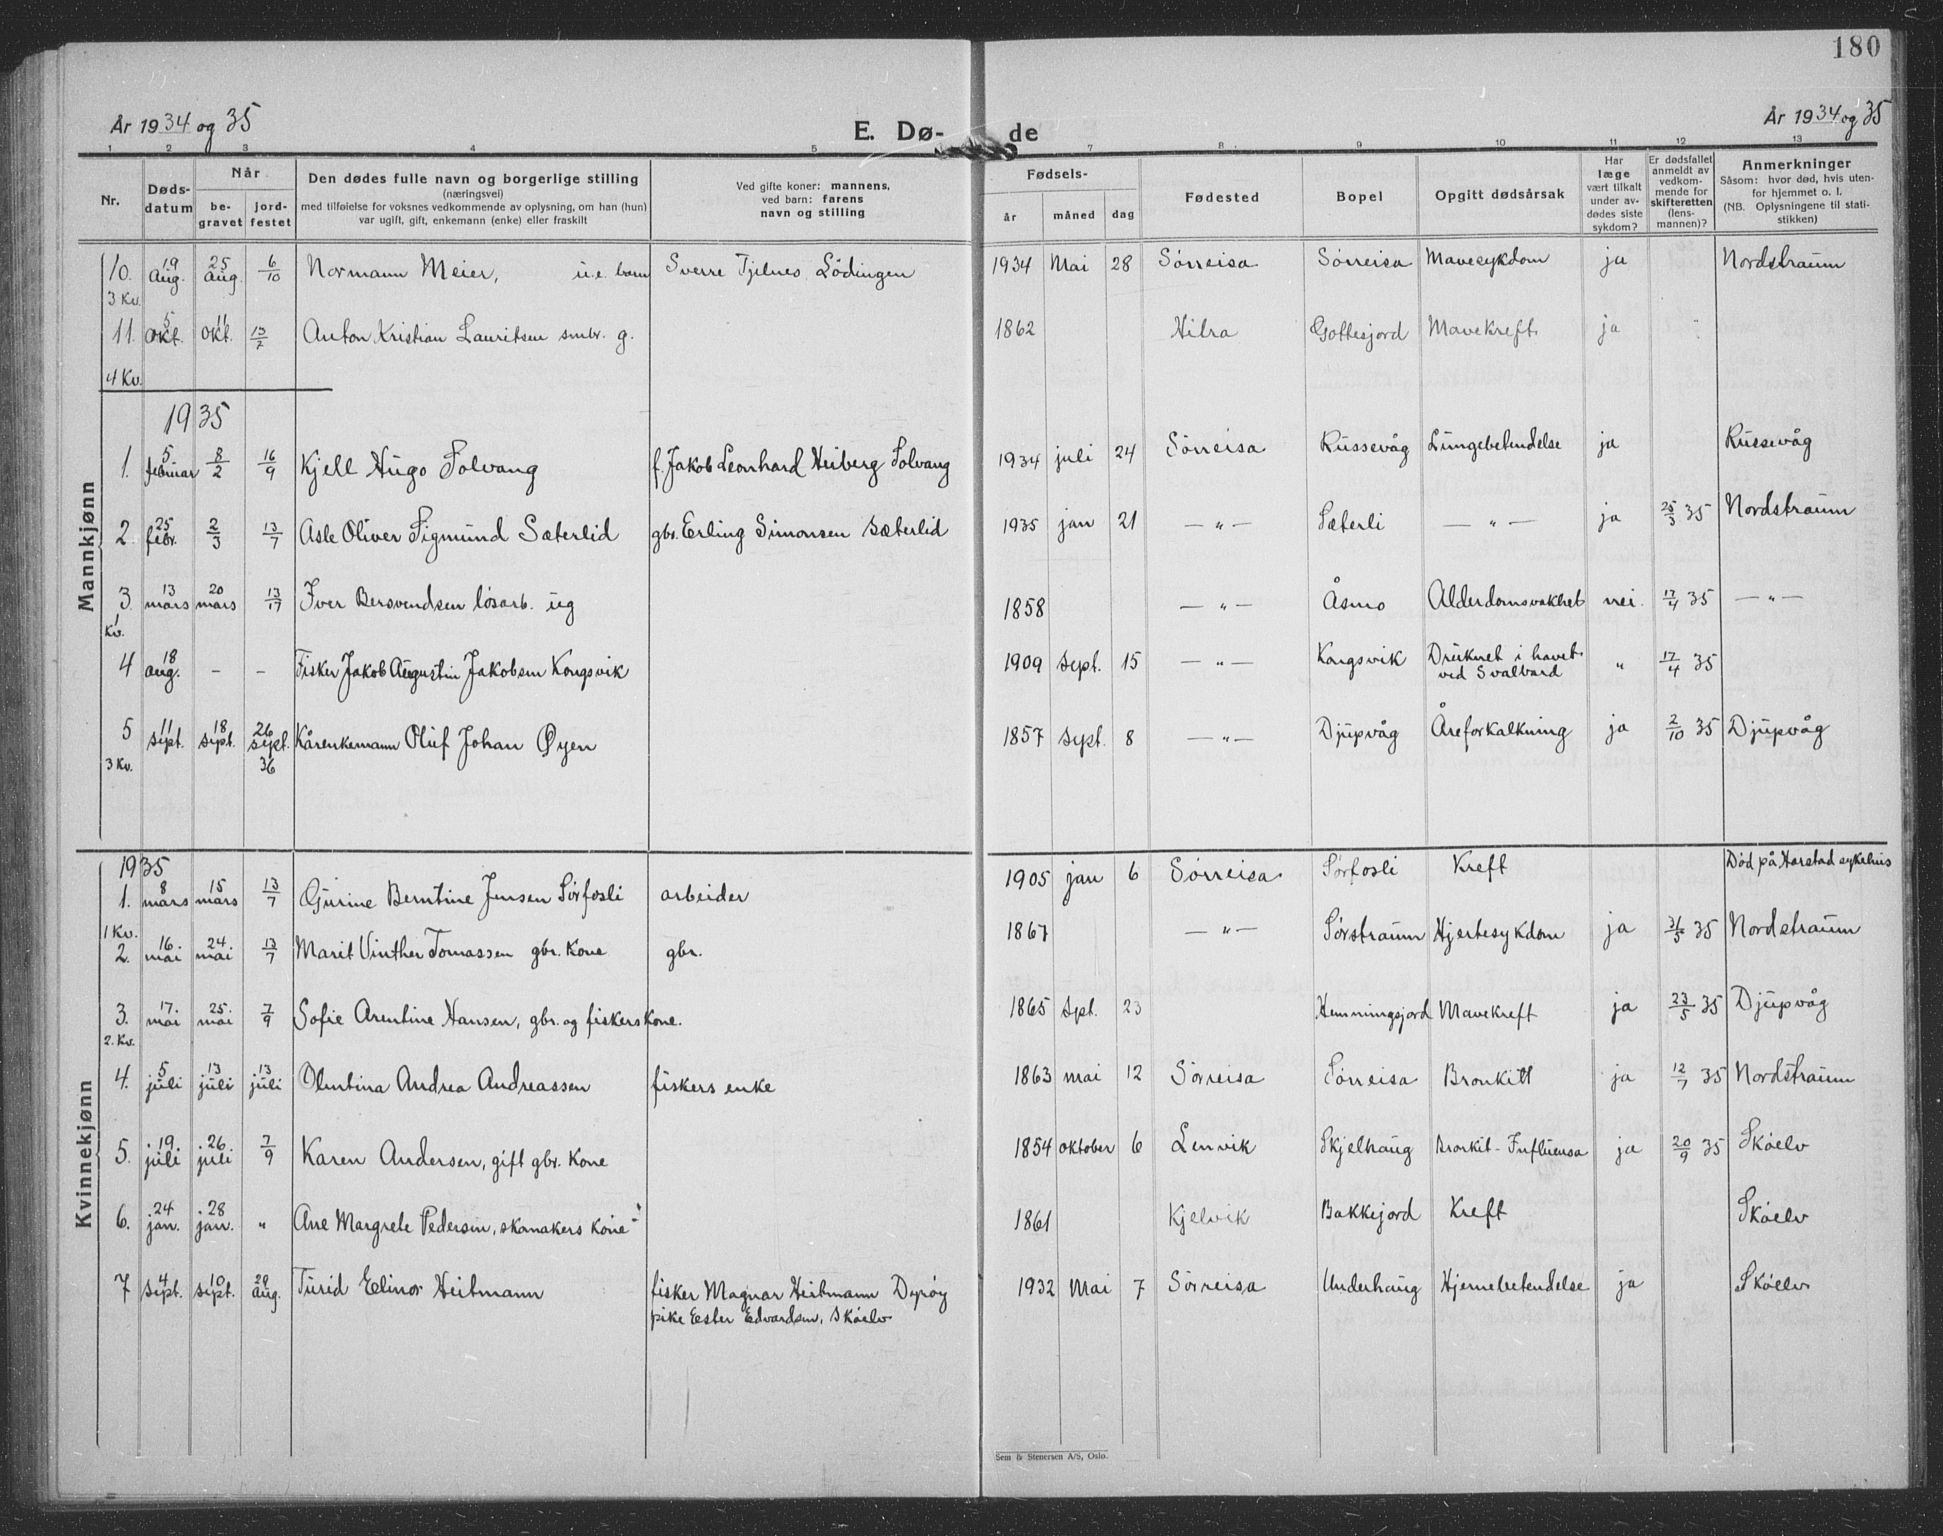 180
År 1934 og 35
E. Dø-de
År 1934 og 35
1 2 3 4 5 7 8 9 10 11 12 13
Nr.
Døds-
datum
Når
be-
gravet
jord-
festet
Den dødes fulle navn og borgerlige stilling
(næringsvei)
med tilføielse for voksnes vedkommende av oplysning, om han (hun)
var ugift, gift, enkemann (enke) eller fraskilt
Ved gifte koner: mannens,
ved barn: farens
navn og stilling
Fødsels-
år måned dag
Fødested
Bopel
Opgitt dødsårsak
Har
læge
vært tilkalt
under av-
dødes siste
sykdom?
Er dødsfallet
anmeldt av
vedkom-
mende for
skifteretten
(lens-
mannen)?
Anmerkninger
Såsom: hvor død, hvis uten-
for hjemmet o. l.
(NB. Oplysningene til stati-
stikken)
Mannkjønn
10. 19 Aug. 25 Aug. 6/10 Normann Meier, u.e. barn Sverre Tjelnes Lödingen 1934 Mai 28 Sørreisa Sørreisa Mavesykdom ja Nordstraum
3 Kv.
11. 5 Okt. 11 Okt. 13/7 Anton Kristian Lauritsen smbr. g. 1862 Hilra Gottesjord Mavekreft ja
4 Kv.
1935
1. 5 februar 8/2 16/9 Kjell Hugo Solvang f. Jakob Leonhard Heiberg Solvang 1934 juli 24 Sørreisa Russevåg Lungebetendelse ja Russevåg
2. 25 febr. 2/3 13/7 Asle Oliver Sigmund Sæterlid gbr. Erling Simonsen Sæterlid 1935 jan 21 — " — Sæterli — " — ja 25/3 35 Nordstraum
3. 13 mars 20 mars 13/17 Iver Bersvendsen løsarb. ug 1858 — " — Åsmo Alderdomsvakhet nei. 17/4 35 — " —
1 Kv.
4 18 aug. - - Fisker Jakob Augustin Jakobsen Kongsvik 1909 sept. 15 — " — Kongsvik Druknet i havet ved Svalbard " 17/4 35
5 11 sept. 18 sept. 26 sept. 36 Kårenkemann Oluf Johan Øyen 1857 sept. 8 — " — Djupvåg Åreforkalkning ja 2/10 35 Djupvåg
3 Kv.
Kvinnekjønn
1935
1. 8 mars 15 mars 13/7 Gurine Berntine Jensen Sørfosli arbeider 1905 jan 6 Sørreisa Sørfosli Kreft Død på Harstad sykehus
1 Kv.
2. 16. mai 24. mai 13/7 Marit Vinther Tomassen gbr. Kone gbr. 1867 — " — Sørstraum Hjertesykdom ja 31/5 35 Nordstraum
3. 17. mai 25. mai 7/9 Sofie Arentine Hansen, gbr. og fiskers Kone. 1865 sept. 23 Hemmingsjord Mavekreft ja 23/5 35 Djupvåg
2. Kv.
4. 5 juli 13 juli 13 juli Olentina Andrea Andreassen fiskers enke 1863 mai 12 Sørreisa Sørreisa Bronkitt ja 12/7 35 Nordstraum
5. 19 juli 26 juli 7/9 Karen Andersen, gift gbr. Kone 1854 oktober 6 Lenvik Skjelhaug Bronkit-Influensa ja 20/9 35 Skóelv
6. 24 jan. 28 jan. " Ane Margrete Pedersen, skomakers Kone 1861 Kjelvik Bakkejord Kreft Skóelv
7 4 sept. 10 sept. 29 aug. Turid Elinor Heitmann fisker Magnar Heitmann Dyrøy 1932 Mai 7 Sørreisa Underhaug Hjernebetendelse ja Skóelv
pike Ester Edvardsen, Skóelv
Sem & Stenersen A/S, Oslo.